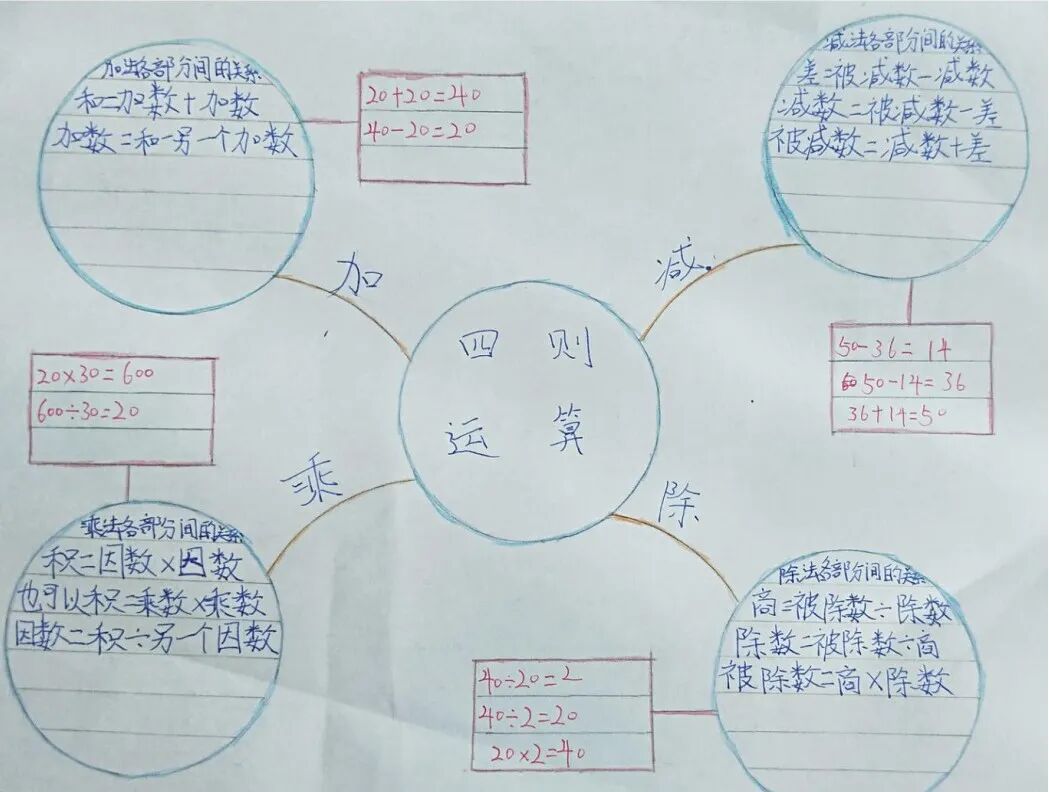 加法各部分间的关系
和=加数+加数
加数=和-另一个加数
20+20=40
40-20=20
减法各部分间的关系
差=被减数-减数
减数=被减数-差
被减数=减数+差
50-36=14
50-14=36
36+14=50
加
减
四则
运算
乘
除
20×30=600
600÷30=20
乘法各部分间的关系
积=因数×因数
也可以积=乘数×乘数
因数=积÷另一个因数
40÷20=2
40÷2=20
20×2=40
除法各部分间的关系
商=被除数÷除数
除数=被除数÷商
被除数=商×除数